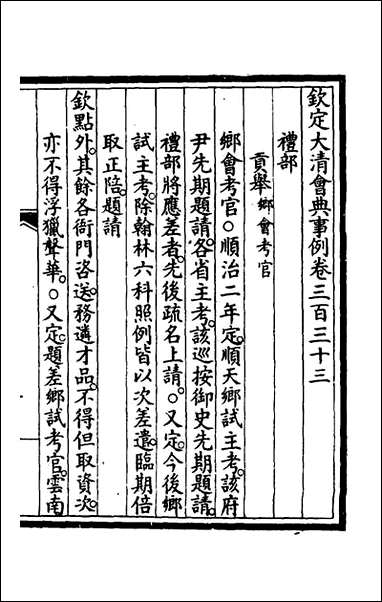 欽定大清會典事例卷三百三十三
禮部
貢舉鄉會考官
鄉會考官○順治二年定。順天鄉試主考。該府
尹先期題請。各省主考。該巡按御史先期題請。
禮部將應差者。先後疏名上請。○又定。今後鄉
試主考。除翰林六科照例皆以次差遣。臨期倍
取正陪題請
欽點外。其餘各衙門咨送。務遴才品。不得但取資次。
亦不得浮獵聲華。○又定。題差鄉試考官。雲南